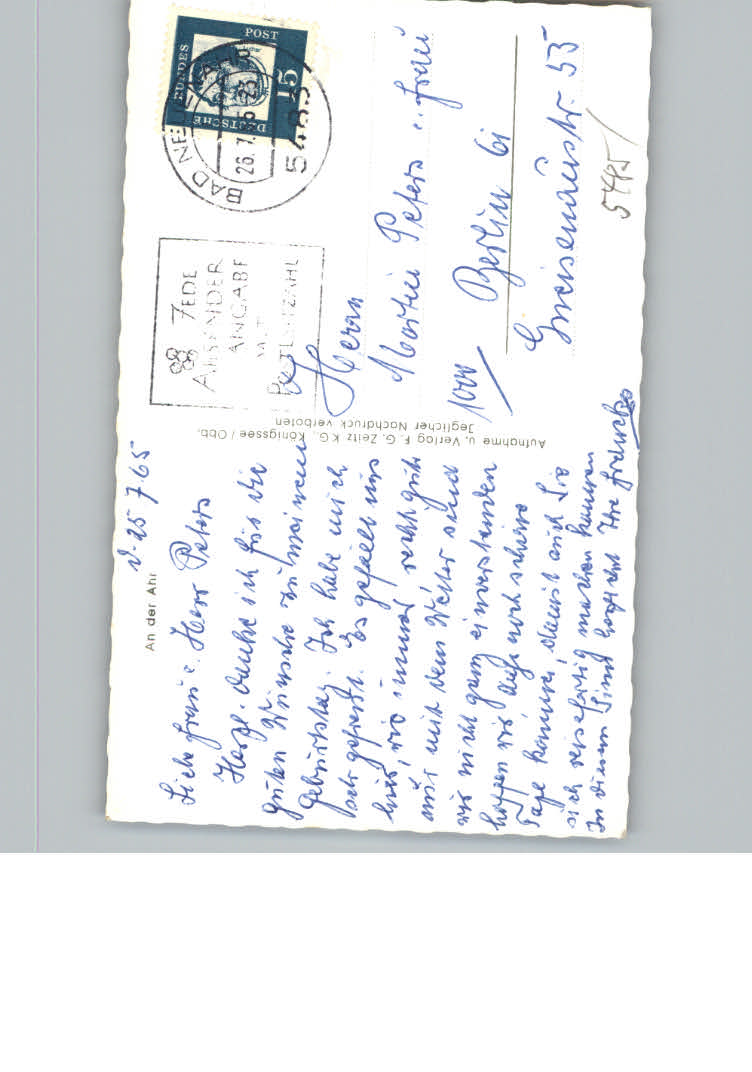 An der Ahr
d. 25.7.65
Liebe Frau u. Herr Peters
Herzl. danke ich für die
guten Wünsche zu meinem
Geburtstag. Ich habe mich
sehr gefreut. Es gefällt uns
hier, wie immer recht gut
nur mit dem Wetter sind
wir nicht ganz einverstanden
hoffen wir, daß noch schöne
Tage kommen, damit auch Sie
sich reisefertig machen können
In diesem Sinne Ihre
Aufnahme u. Verlag F. G. Zeitz K.G., Königssee / Obb.
Jeglicher Nachdruck verboten
DEUTSCHE BUNDES POST
15
BAD NEUENAHR
26.7.65-23
5483
JEDE
ABSENDER
ANGABE
MIT
POSTLEITZAHL
Herrn
Martin Peters u. Frau
1000 Berlin 61
Gneisenaustr. 53
5485